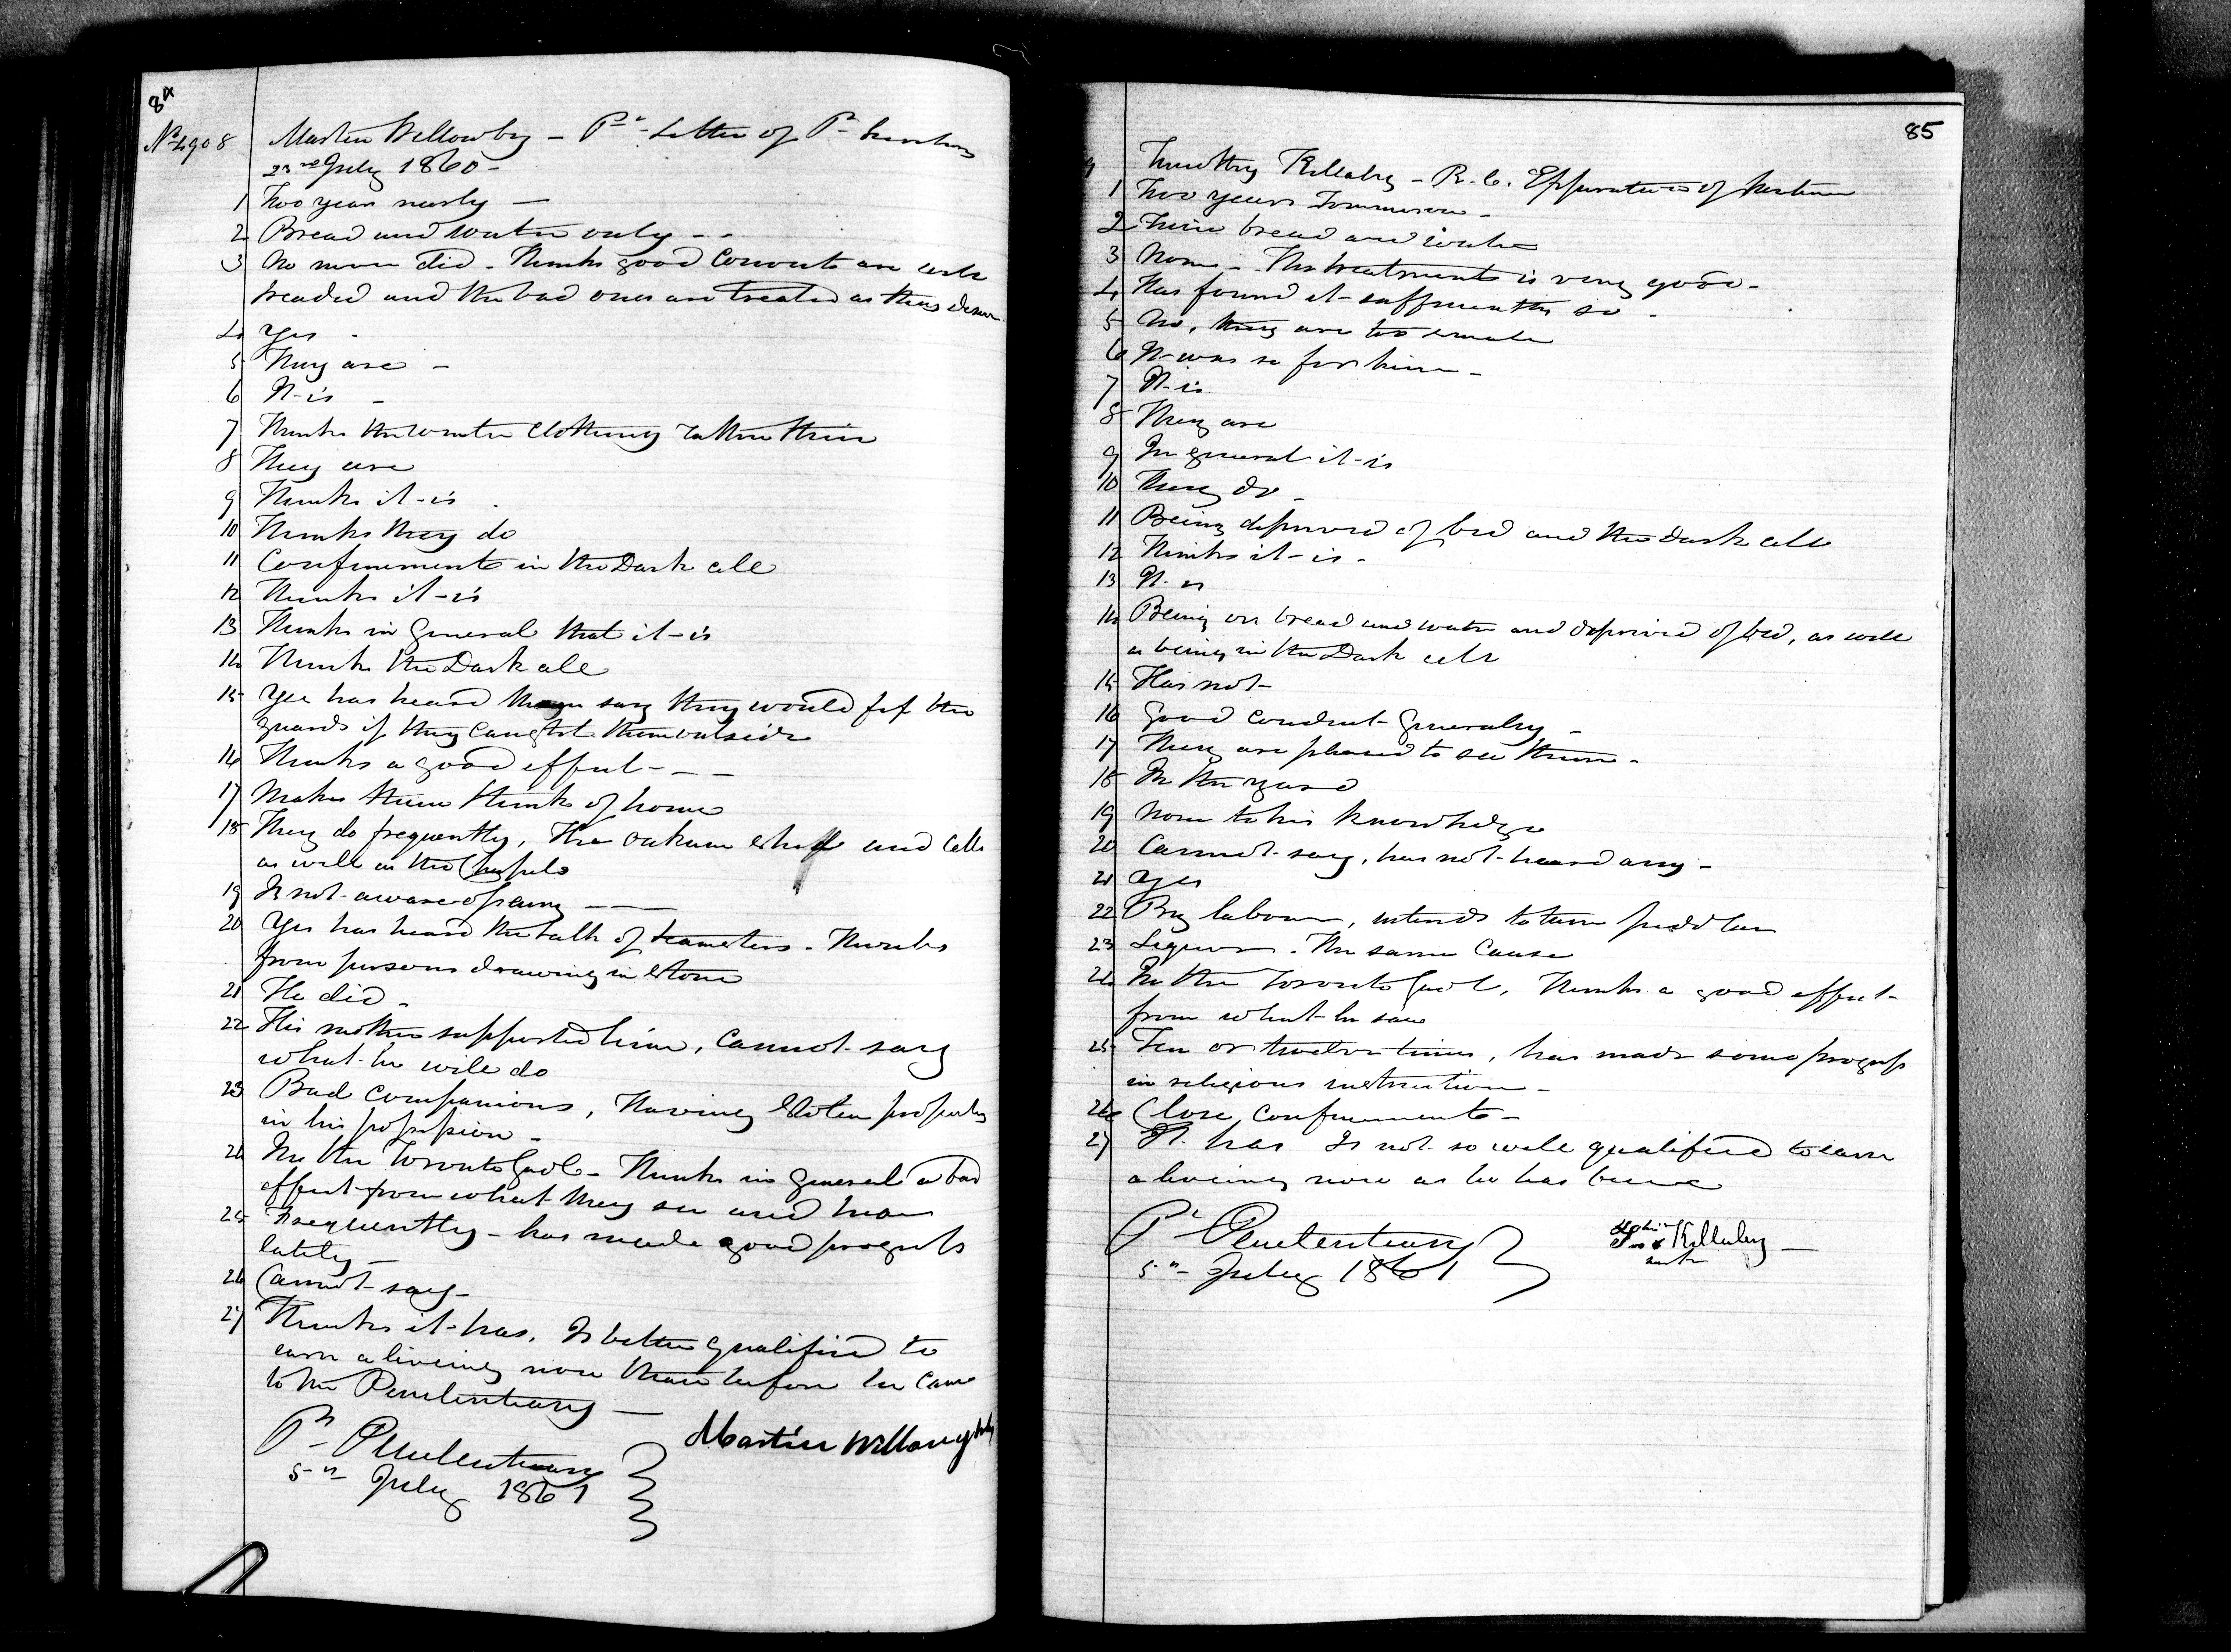 84
No 4908 Martin Willowby - Pr. - Letter of Pr
23rd July 1860 -
1 Two years nearly -
2 Bread and water only - -
3 No never did - Thinks good Convicts are well
treated and the bad ones are treated as they deserve
4 Yes -
5 They are -
6 It is -
7 Thinks the winter clothing rather thin
8 They are
9 Thinks it is
10 Thinks they do
11 Confinement in the Dark cell
12 Thinks it is
13 Thinks in General that it is
14 Thinks the Dark cell
15 Yes has heard them say they would the
guards if they caught them outside
16 Thinks a good effect - - -
17 Makes them think of home
18 They do frequently, The oakum shop and cells
as well as the Chapels
19 Is not aware of any - -
20 Yes has heard the talk of teamsters - Thinks
from persons drawing in stone
21 He did -
22 His mother supported him, Cannot say
what he will do
23 Bad Companions, Having stolen property
in his possession -
24 In the Toronto Gaol - Thinks in general a bad
effect from what they see and hear
25 Frequently - has made good progress
lately -
26 Cannot say -
27 Thinks it has. Is better qualified to
earn a liveing now than before he came
to the Penitentiary -
Pr Penitentiary
5th July 1861
Martin Willoughby
85
9 Timothy Killaby - R. C. Expiration of Sentence
1 Two years Tommorow -
2 Twice bread and water
3 None - The treatment is very good -
4 Has found it sufficiently so -
5 No, they are too small
6 It was so for him -
7 It is
8 They are
9 In general it is
10 They do -
11 Being deprived of bed and the dark cell
12 Thinks it is -
13 It is
14 Being on bread and water and deprived of bed, as well
as being in the Dark cell
15 Has not -
16 Good conduct generally -
17 They are pleased to see them -
18 In the yard
19 None to his knowledge
20 Cannot say, has not heard any -
21 Yes
22 By labour, intends to turn peddler
23 Liquor. The same Cause
24 In the Toronto Gaol, Thinks a good effect
from what he saw
25 Ten or twelve times, has made some progress
in religious instruction -
26 Close confinement -
27 It has Is not so well qualified to earn
a liveing now as he has been
Pr Penitentiary
5th July 1861
his
x Killaby -
mark